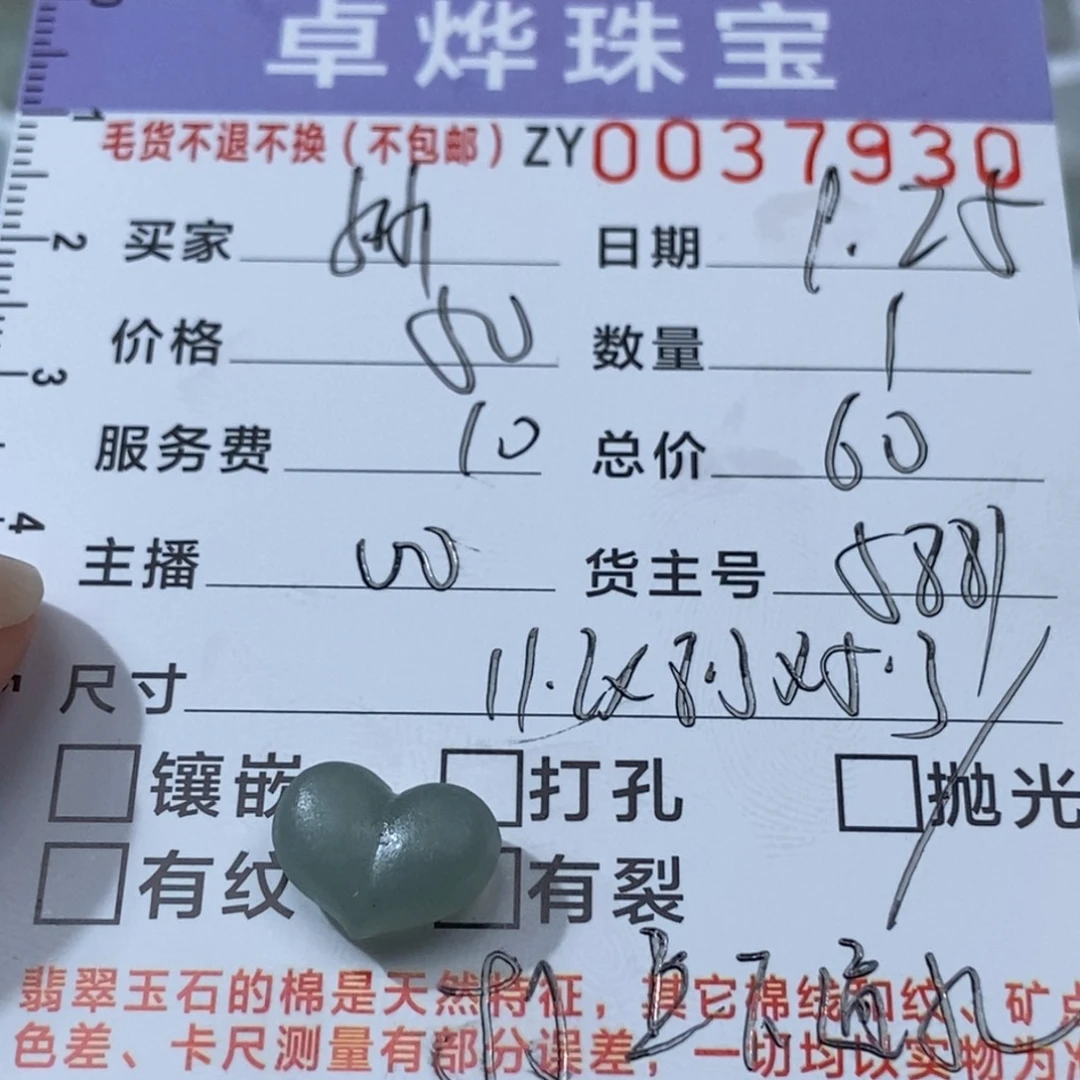 卓烨珠宝
毛货不退不换（不包邮） ZY0037930
买家 日期 1.25
价格 50 数量 1
服务费 10 总价 60
主播 货主号 5881
尺寸 11.2x8.3x5.3
镶嵌 打孔 抛光
有纹 有裂
翡翠玉石的棉是天然特征，其它棉线和纹、矿点
色差、卡尺测量有部分误差，一切均以实物为准